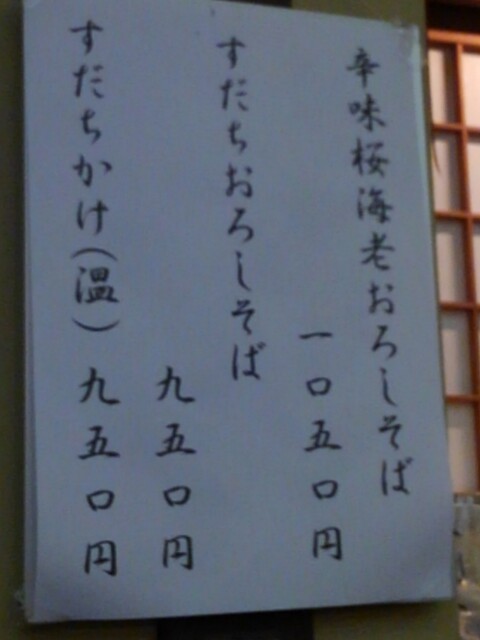 辛味桜海老おろしそば
一〇五〇円
すだちおろしそば
九五〇円
すだちかけ(温) 九五〇円